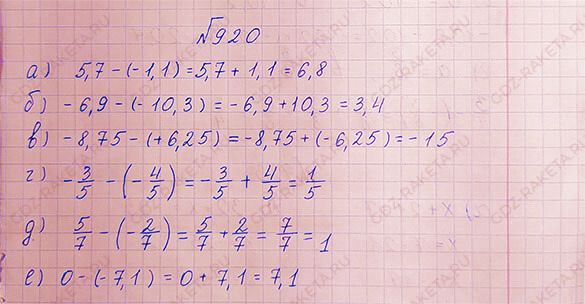 №920
а) 5,7 - (-1,1) = 5,7 + 1,1 = 6,8
б) -6,9 - (-10,3) = -6,9 + 10,3 = 3,4
в) -8,75 - (+6,25) = -8,75 + (-6,25) = -15
г) -3/5 - (-4/5) = -3/5 + 4/5 = 1/5
д) 5/7 - (-2/7) = 5/7 + 2/7 = 7/7 = 1
е) 0 - (-7,1) = 0 + 7,1 = 7,1
GDZ-RAKETA.RU